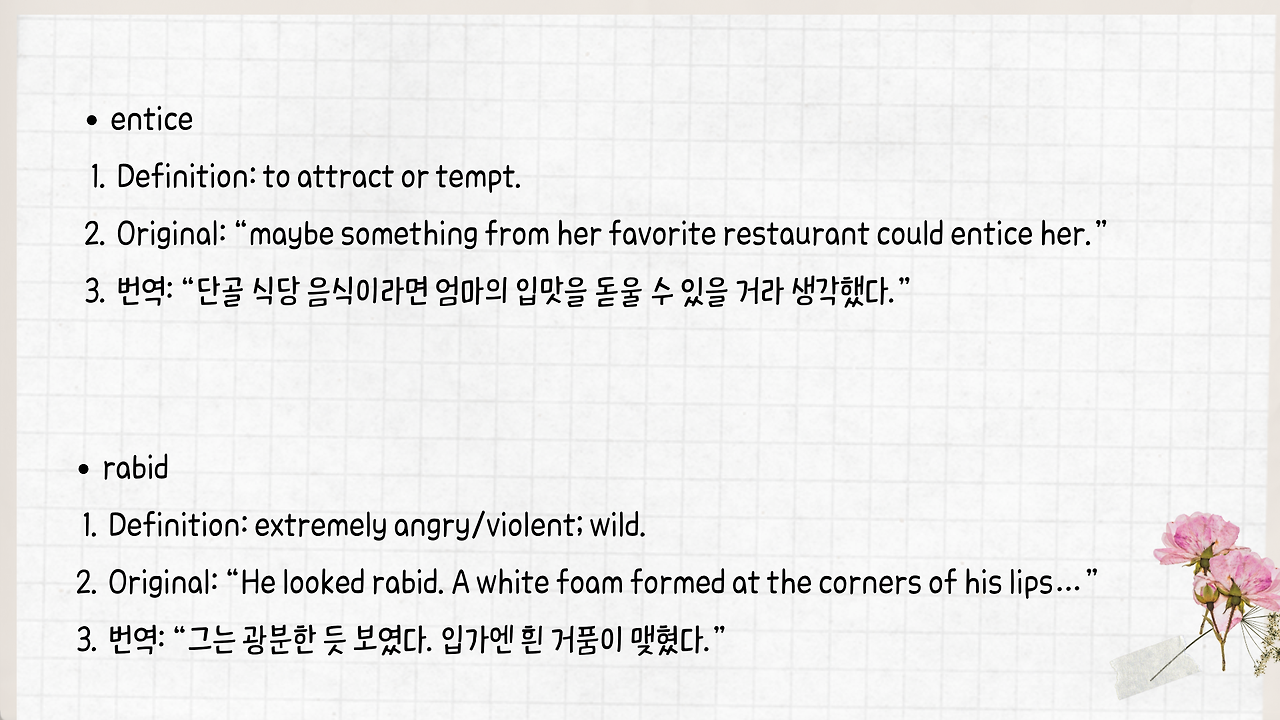 • entice
1. Definition: to attract or tempt.
2. Original: “maybe something from her favorite restaurant could entice her.”
3. 번역: “단골 식당 음식이라면 엄마의 입맛을 돋울 수 있을 거라 생각했다.”
• rabid
1. Definition: extremely angry/violent; wild.
2. Original: “He looked rabid. A white foam formed at the corners of his lips...”
3. 번역: “그는 광분한 듯 보였다. 입가엔 흰 거품이 맺혔다.”